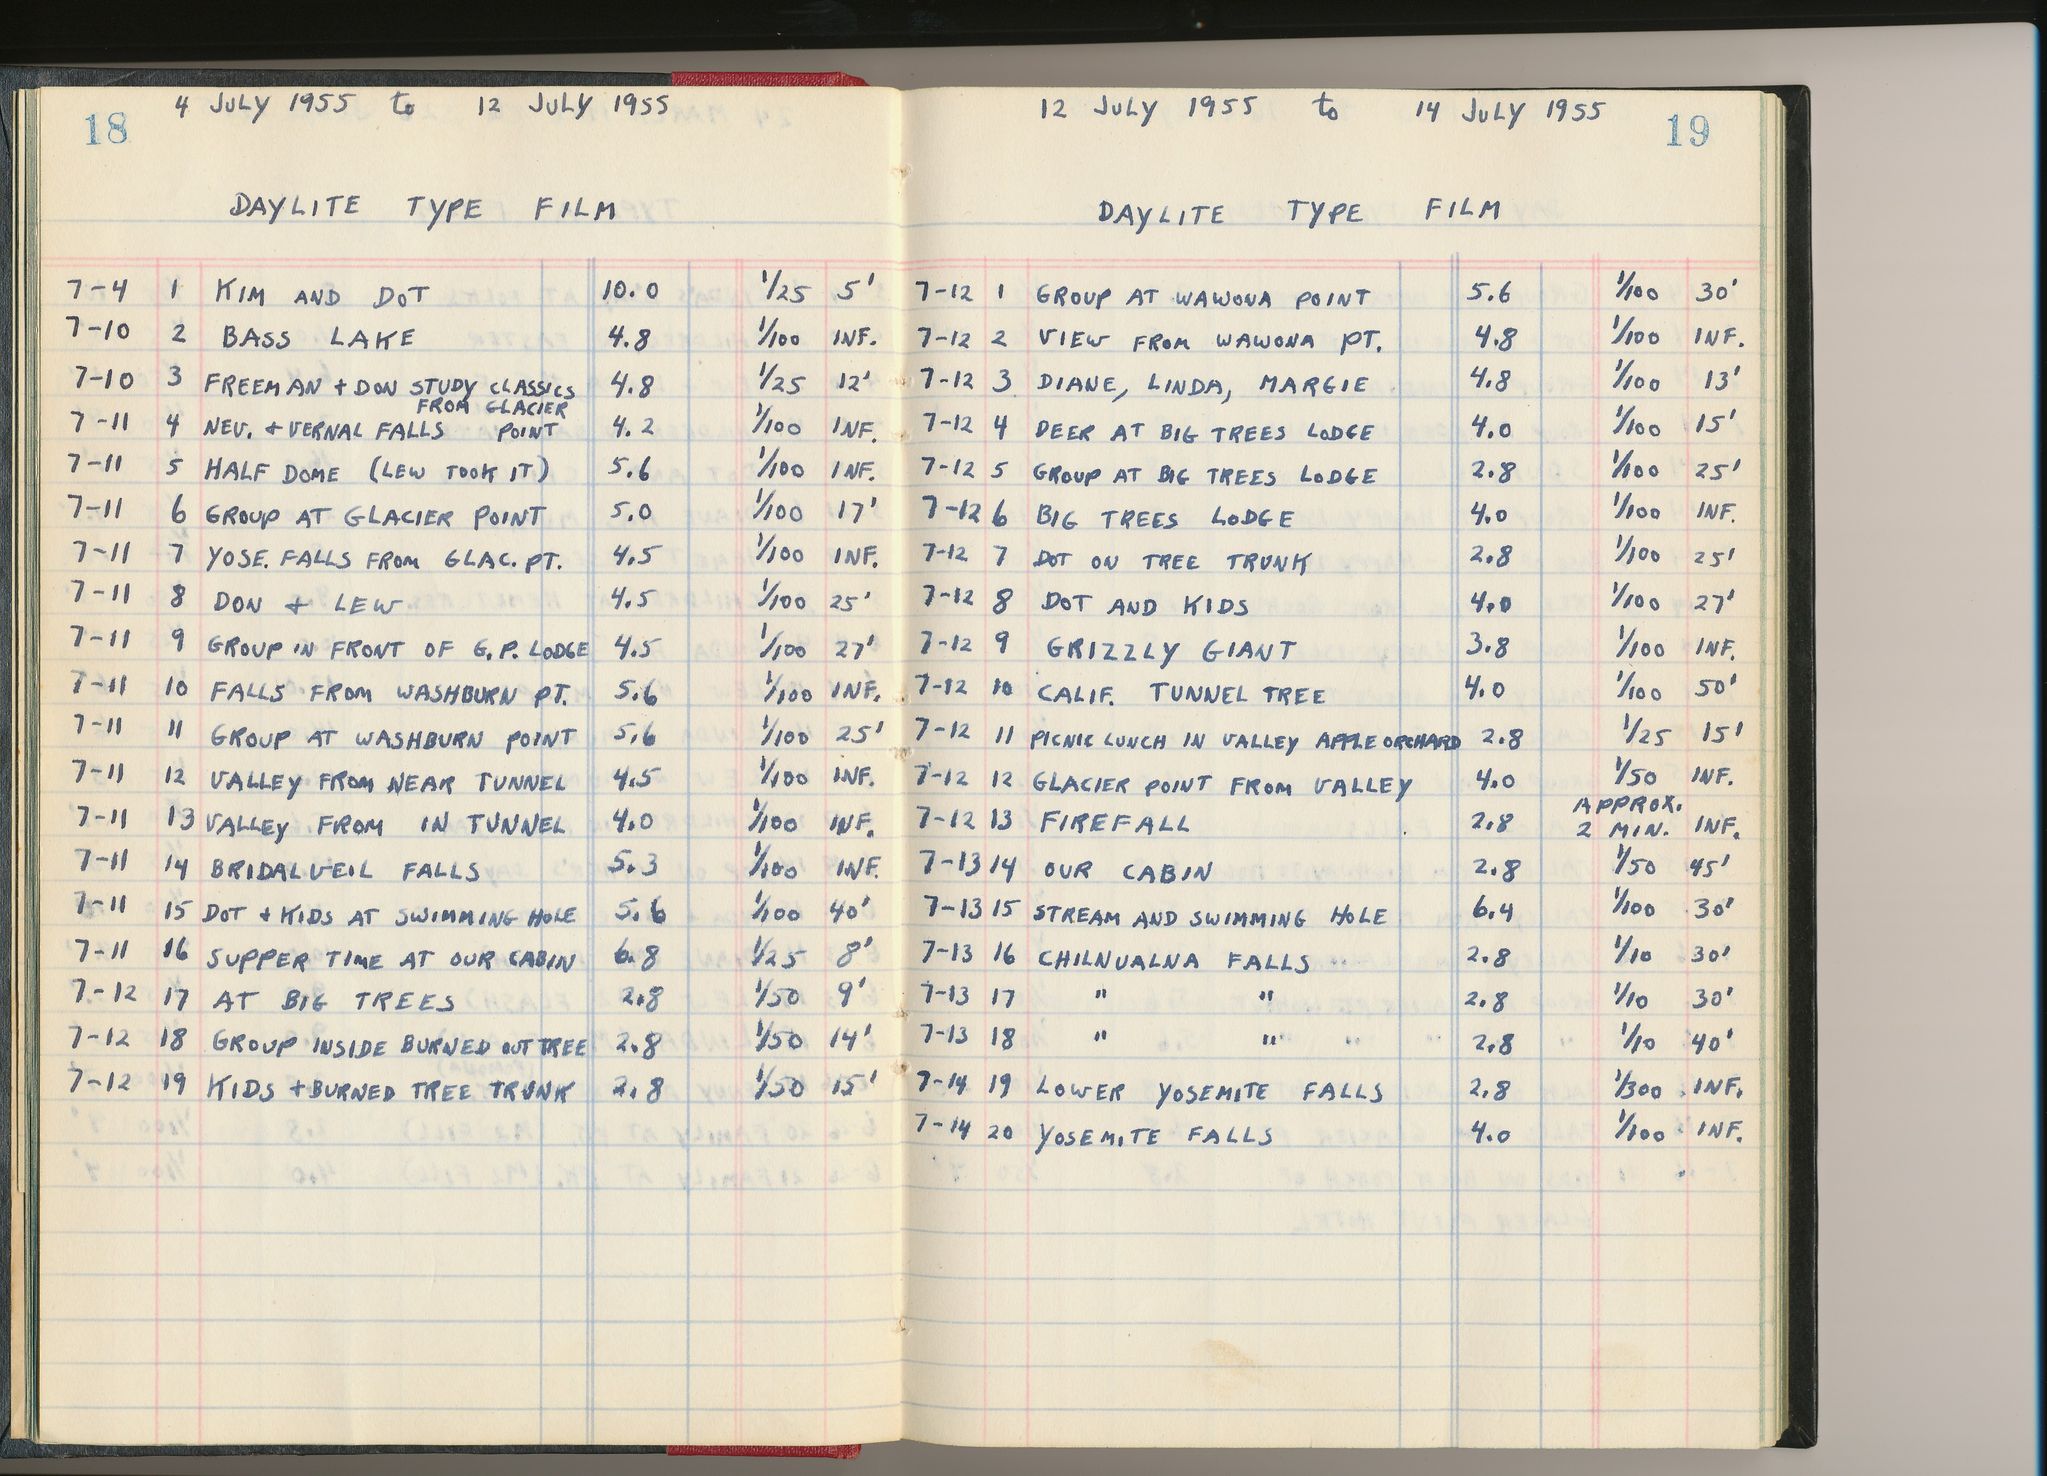 18
4 JULY 1955 to 12 JULY 1955
DAYLITE TYPE FILM
7-4 1 KIM AND DOT 10.0 1/25 5'
7-10 2 BASS LAKE 4.8 1/100 INF.
7-10 3 FREEMAN + DON STUDY CLASSICS 4.8 1/25 12'
FROM GLACIER
7-11 4 NEV. + VERNAL FALLS POINT 4.2 1/100 INF.
7-11 5 HALF DOME (LEW TOOK IT) 5.6 1/100 INF.
7-11 6 GROUP AT GLACIER POINT 5.0 1/100 17'
7-11 7 YOSE. FALLS FROM GLAC. PT. 4.5 1/100 INF.
7-11 8 DON + LEW 4.5 1/100 25'
7-11 9 GROUP IN FRONT OF G.P. LODGE 4.5 1/100 27'
7-11 10 FALLS FROM WASHBURN PT. 5.6 1/100 INF.
7-11 11 GROUP AT WASHBURN POINT 5.6 1/100 25'
7-11 12 VALLEY FROM NEAR TUNNEL 4.5 1/100 INF.
7-11 13 VALLEY FROM IN TUNNEL 4.0 1/100 INF.
7-11 14 BRIDALVEIL FALLS 5.3 1/100 INF.
7-11 15 DOT + KIDS AT SWIMMING HOLE 5.6 1/100 40'
7-11 16 SUPPER TIME AT OUR CABIN 6.8 1/25 8'
7-12 17 AT BIG TREES 2.8 1/50 9'
7-12 18 GROUP INSIDE BURNED OUT TREE 2.8 1/50 14'
7-12 19 KIDS + BURNED TREE TRUNK 2.8 1/50 15'
12 JULY 1955 to 14 JULY 1955
19
DAYLITE TYPE FILM
7-12 1 GROUP AT WAWONA POINT 5.6 1/100 30'
7-12 2 VIEW FROM WAWONA PT. 4.8 1/100 INF.
7-12 3 DIANE, LINDA, MARGIE 4.8 1/100 13'
7-12 4 DEER AT BIG TREES LODGE 4.0 1/100 15'
7-12 5 GROUP AT BIG TREES LODGE 2.8 1/100 25'
7-12 6 BIG TREES LODGE 4.0 1/100 INF.
7-12 7 DOT ON TREE TRUNK 2.8 1/100 25'
7-12 8 DOT AND KIDS 4.0 1/100 27'
7-12 9 GRIZZLY GIANT 3.8 1/100 INF.
7-12 10 CALIF. TUNNEL TREE 4.0 1/100 50'
7-12 11 PICNIC LUNCH IN VALLEY APPLE ORCHARD 2.8 1/25 15'
7-12 12 GLACIER POINT FROM VALLEY 4.0 1/50 INF.
APPROX.
7-12 13 FIREFALL 2.8 2 MIN. INF.
7-13 14 OUR CABIN 2.8 1/50 45'
7-13 15 STREAM AND SWIMMING HOLE 6.4 1/100 30'
7-13 16 CHILNUALNA FALLS 2.8 1/10 30'
7-13 17 " " 2.8 1/10 30'
7-13 18 " " 2.8 1/10 40'
7-14 19 LOWER YOSEMITE FALLS 2.8 1/300 INF.
7-14 20 YOSEMITE FALLS 4.0 1/100 INF.